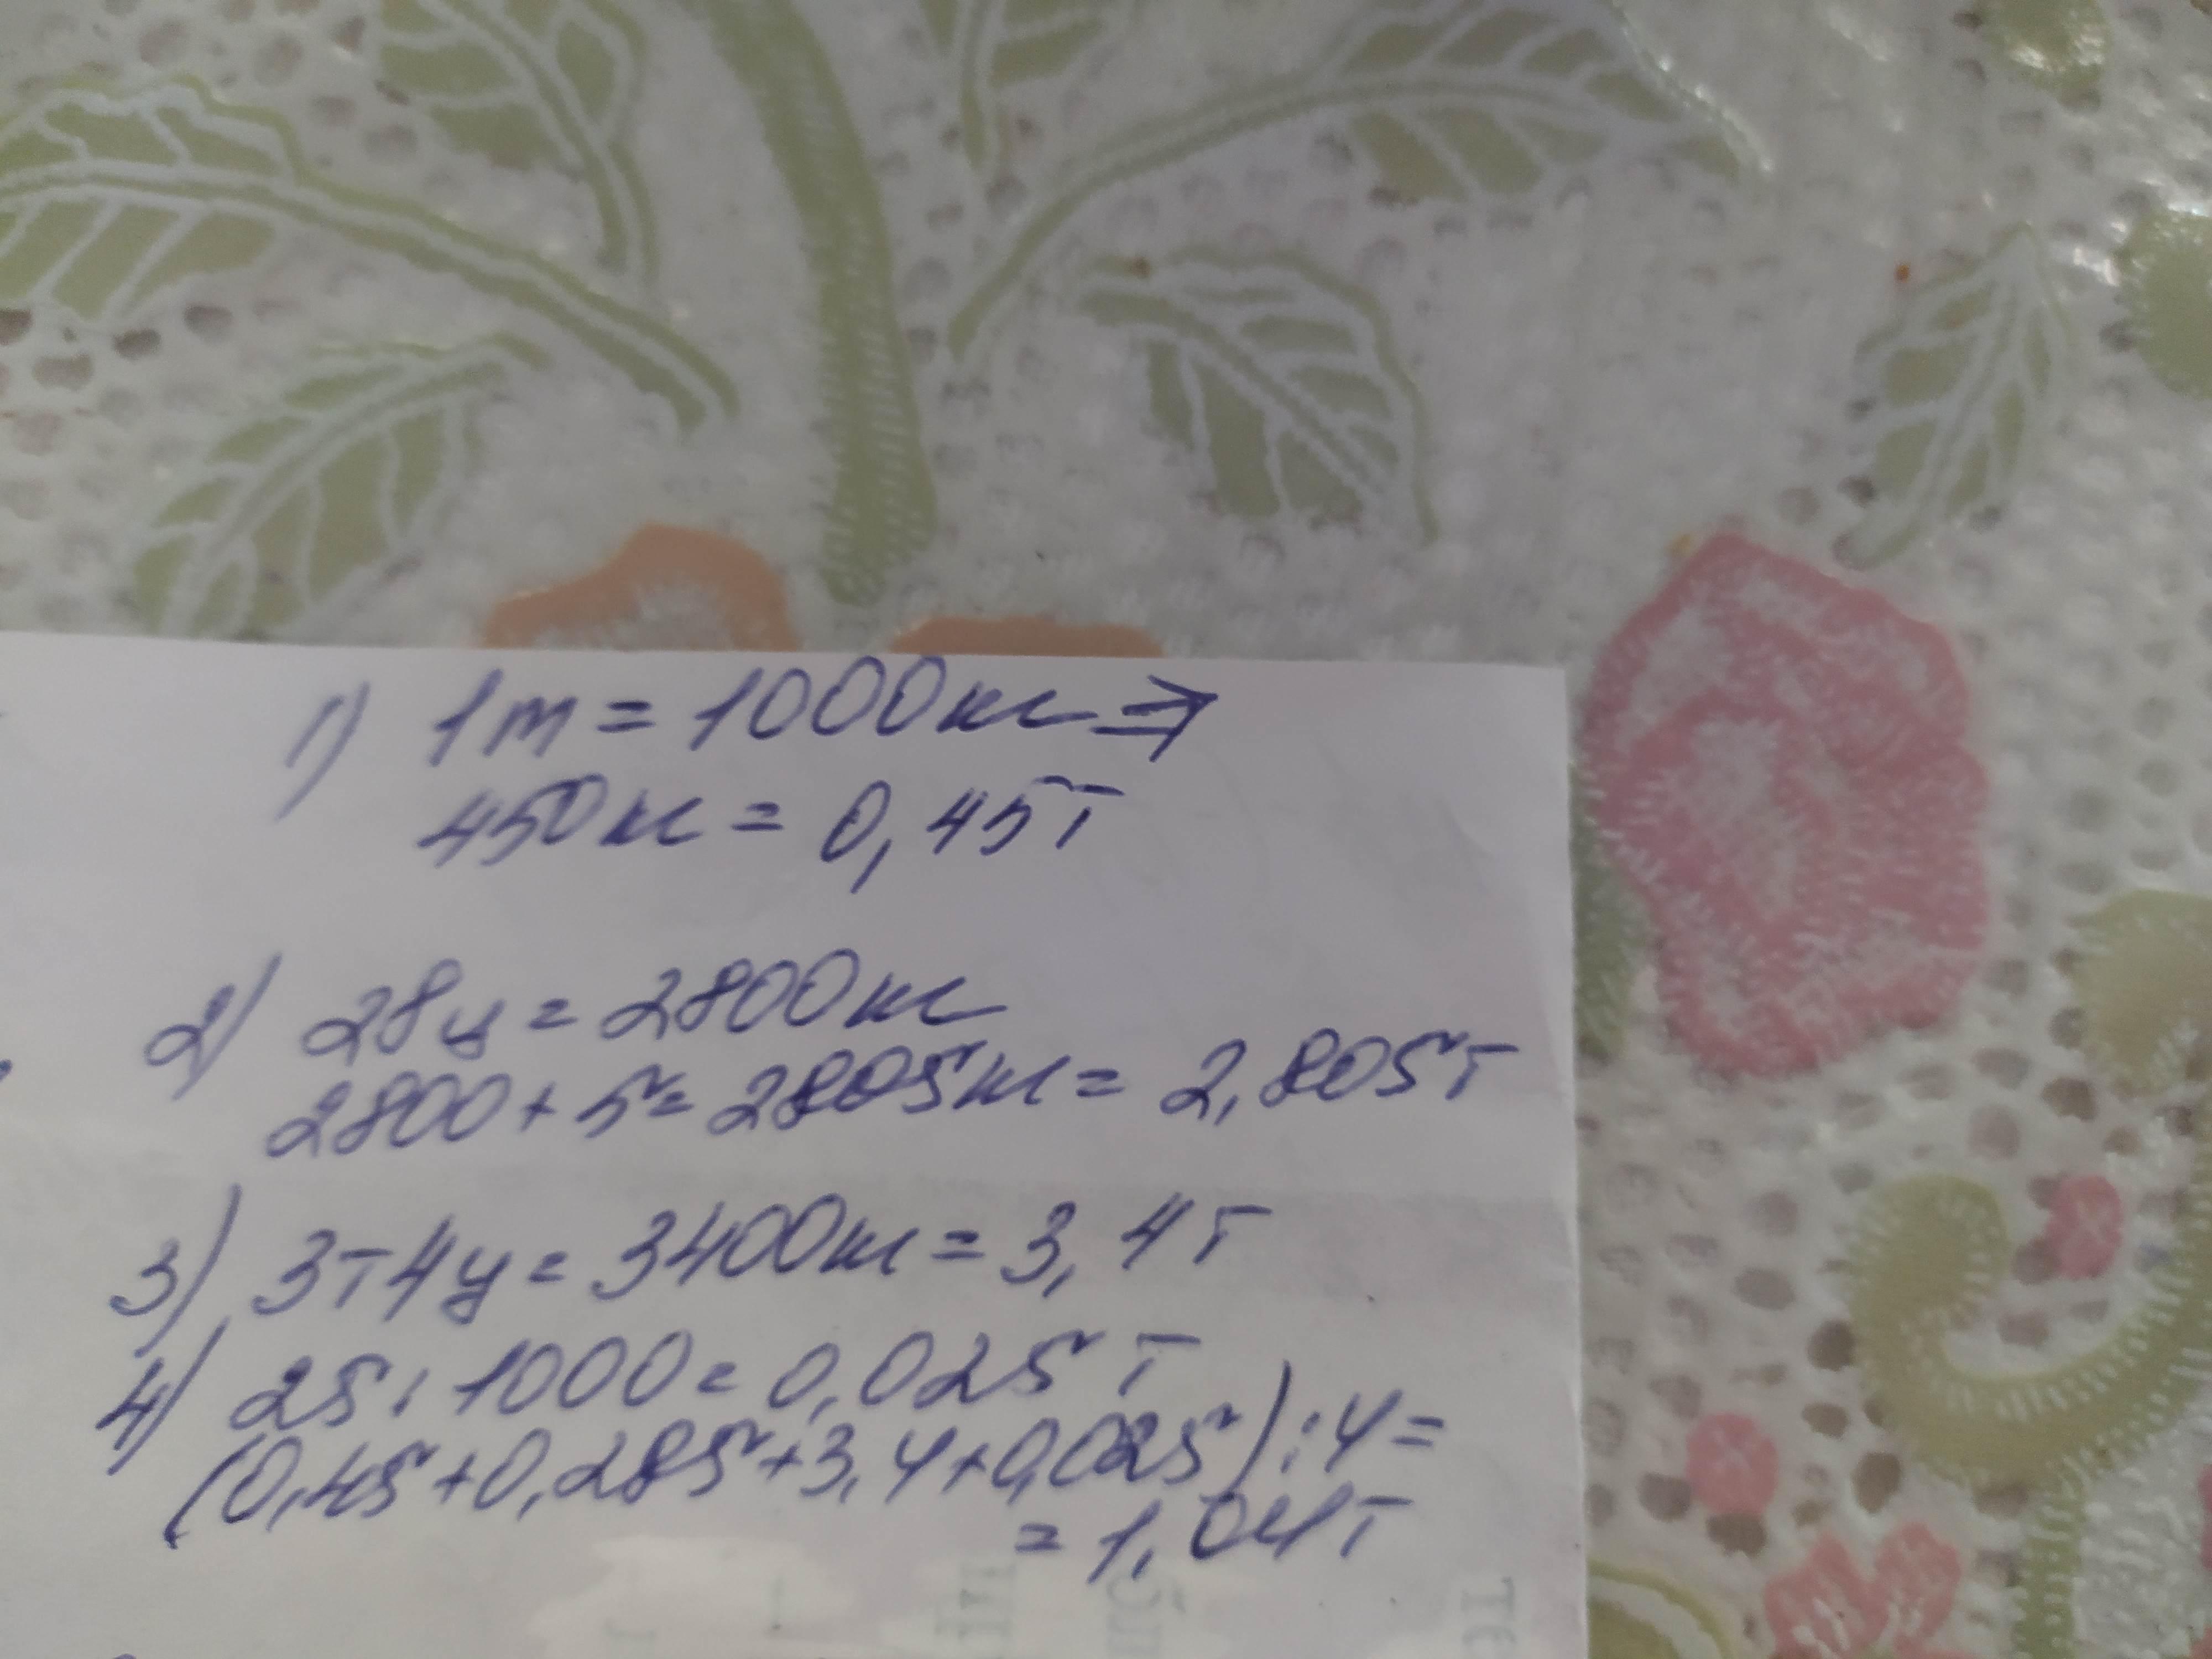 1) 1т = 1000кг ⇒
450кг = 0,45т
2) 28ц = 2800кг
2800 + 5 = 2805кг = 2,805т
3) 3т4ц = 3400кг = 3,4т
4) 25 : 1000 = 0,025 т
(0,45 + 0,285 + 3,4 + 0,025) : 4 =
= 1,04т